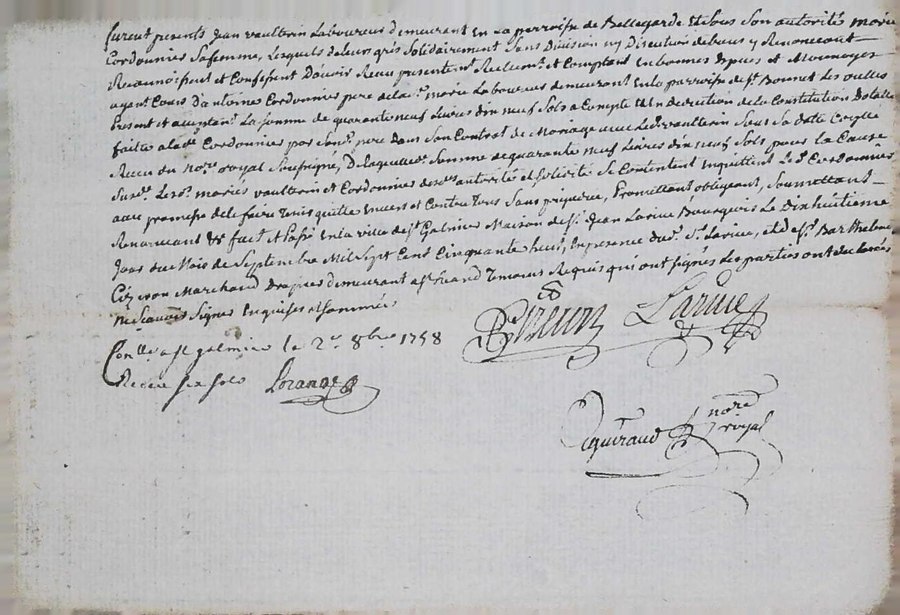 furent presents Jean vaultrin Laboureur demeurant en La parroisse de Bellegarde et sous son autorité marie
Cordonnier Sa femme, Lesquels de leurs grés Solidairement Sans Division ny Discution de biens y Renoncant
Reconnoissent et Confessent D'avoir Recu presentemt. Reellemt. et Comptant en bonnes Especes et Monnoyes
ayant Cours d'antoine Cordonnier pere de lade. marie Laboureur demeurant en la parroisse de st. Bonnet Les oulles
present et acceptant La somme de quarante neuf livres dix neuf Sols a Compte et In deduction de la Constitution Dotalle
faitte a lade. Cordonnier par sond. pere dans Son Contrat de Mariage avec Led. vaultrin Sous Sa date Cy
Recu du nore. royal Soussigné, De laquelle Somme de quarante neuf Livres dix neuf Sols pour la Cause
Susde. Lesd. mariés vaultrin et Cordonnier autorité et Solidité Se Contentent En quittent Led. Cordonnier
avec promesse de le faire tenir quitte envers et Contre tous Sans prejudice, Promettant obligeant, Soumettant
Renoncant &c fait et Passé en la ville de st. Galmier Maison de sr. Jean Larüe Bourgeois Le dixhuitieme
Jour du Mois de Septembre Mil Sept Cent Cinquante huit, En presence dud. sr. Larüe, et de sr. Barthelemy
marchand demeurant a st. temoins Requis qui ont signés Les parties ont declarées
ne Scavoir Signer Enquises et Sommées
Larüe
Conllé a st galmier le 2e. 8bre. 1758
Receu six sols
nore. royal